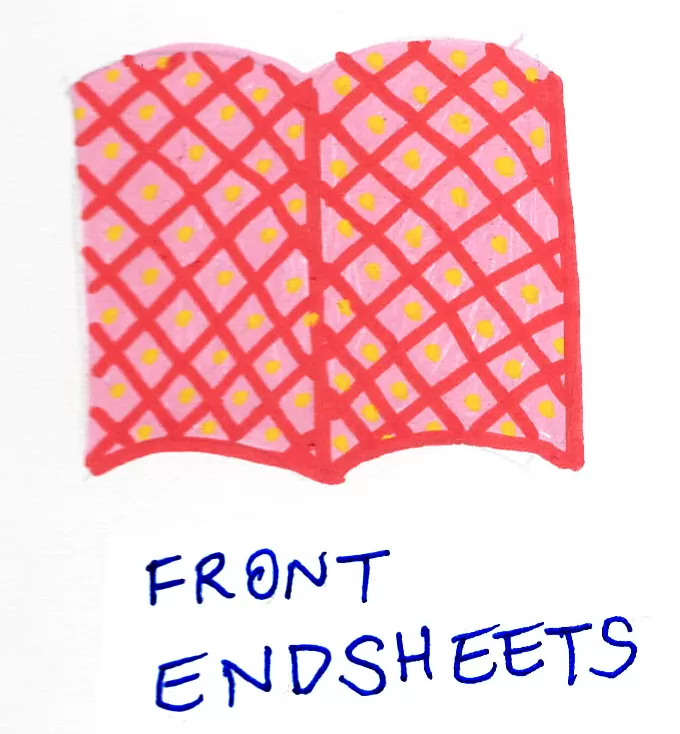 FRONT
ENDSHEETS